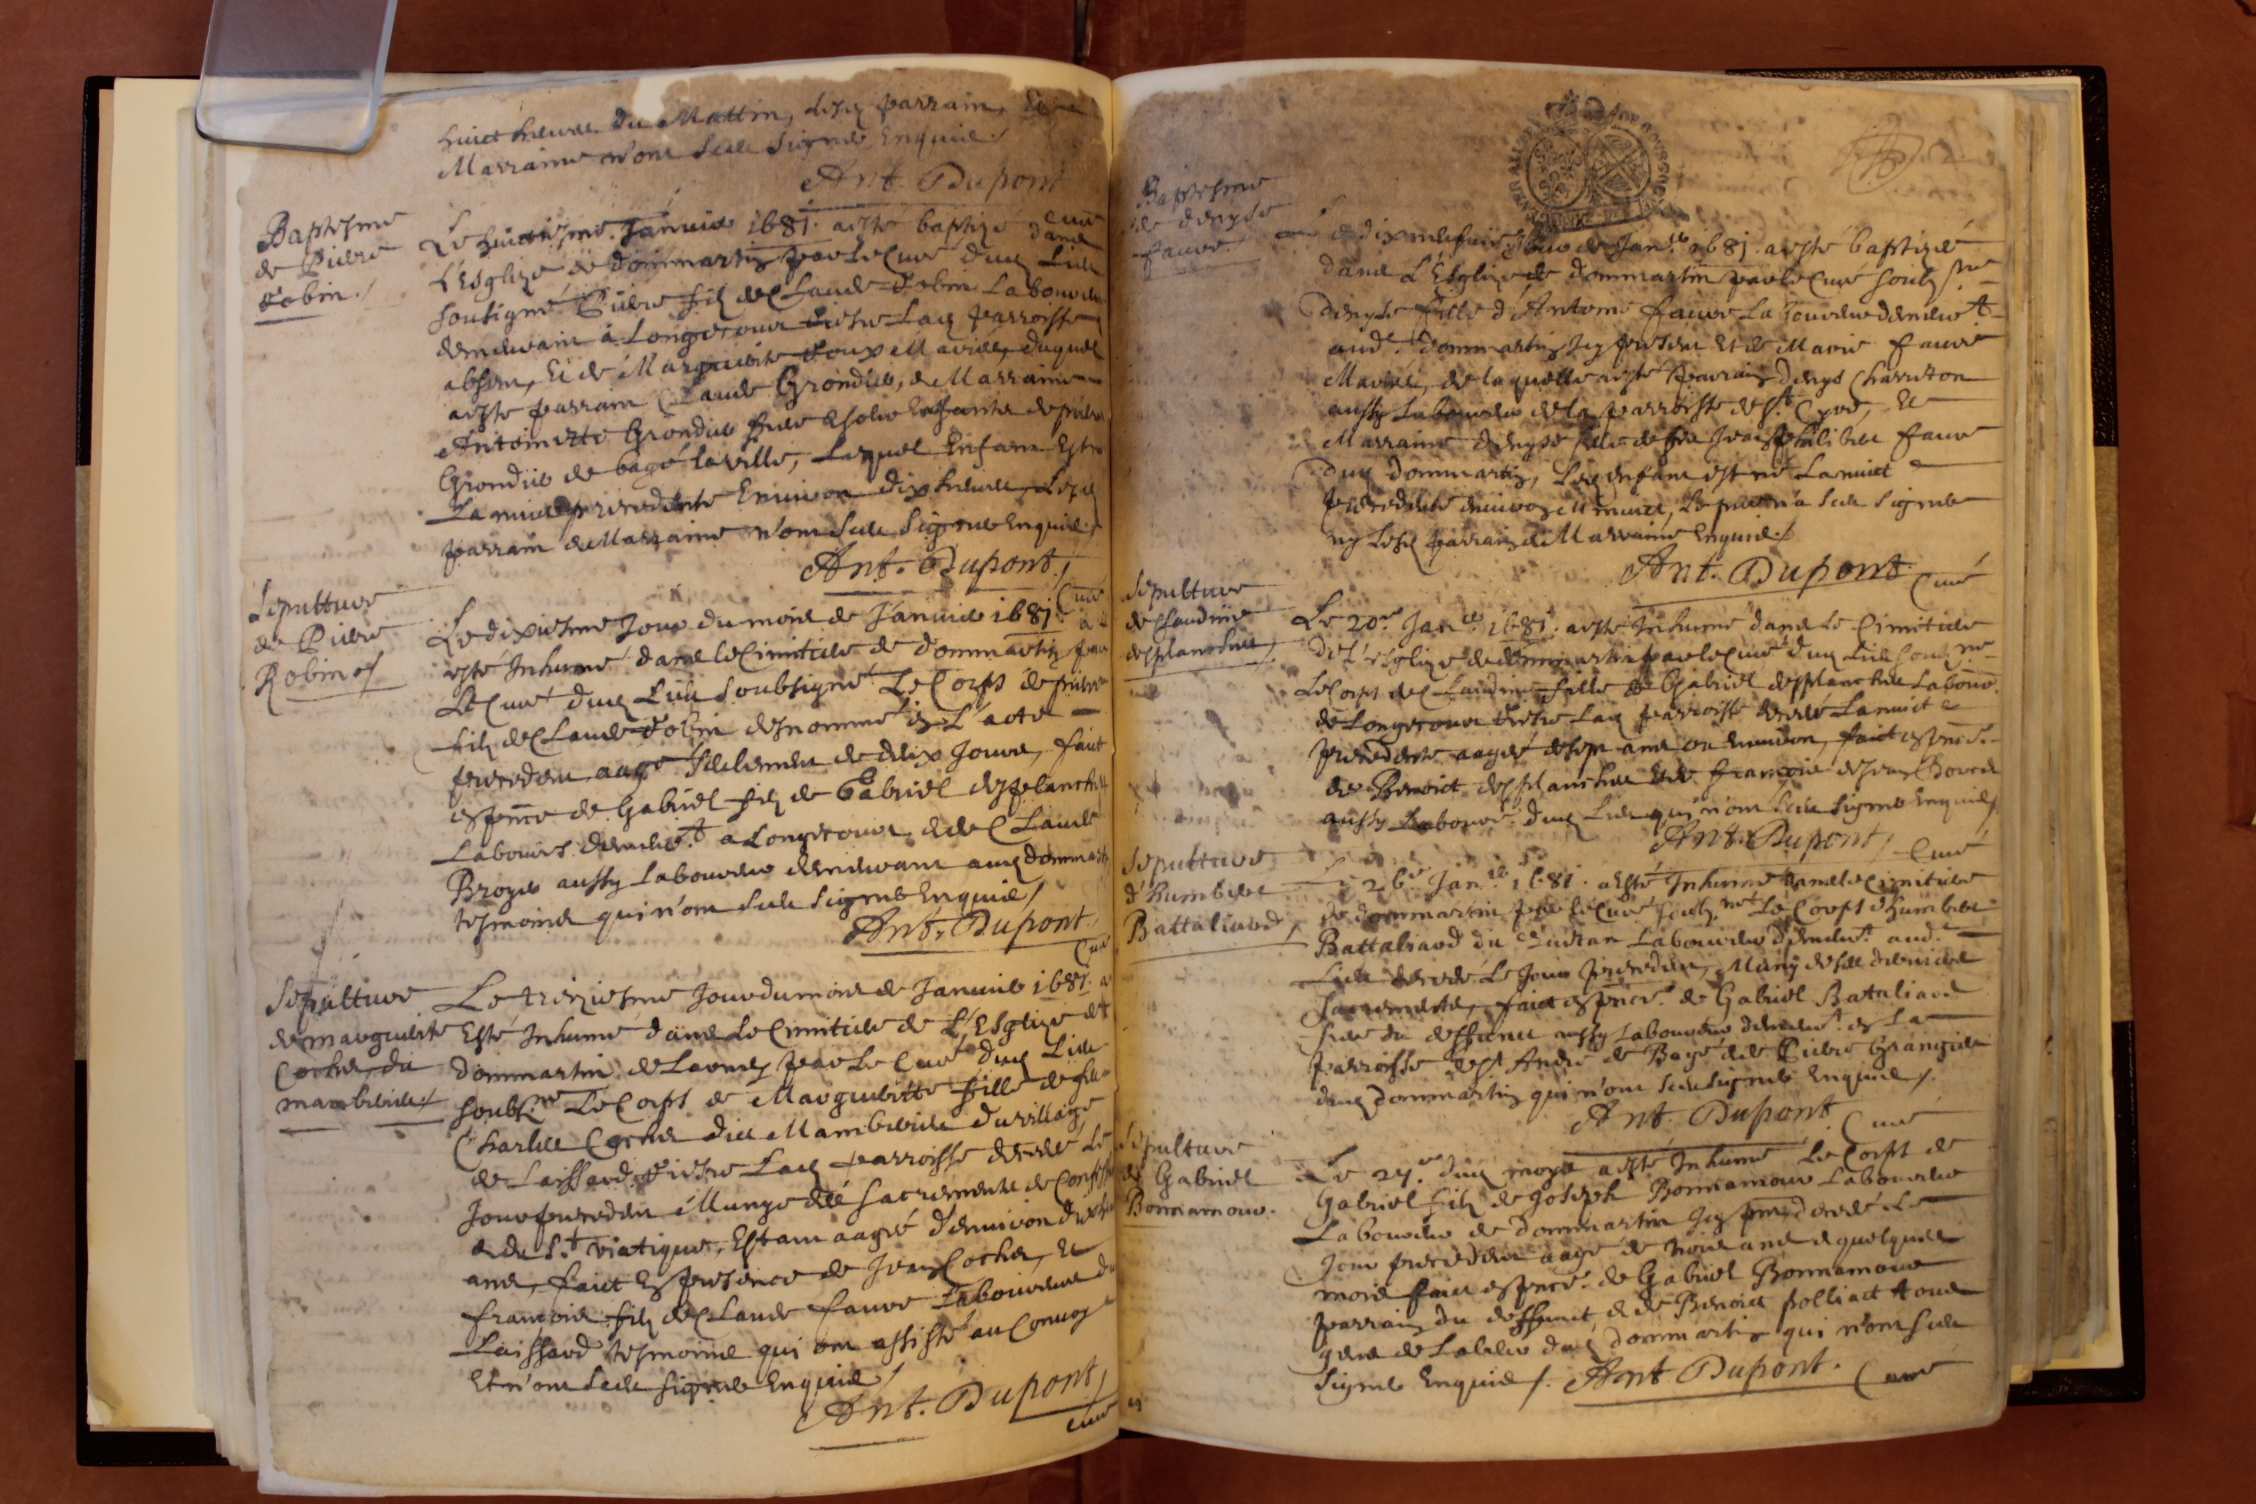 huict heures du Mattin, lesq parrain, Et
Marraine n'ont sceu signer Enquis /
Ant. Dupont
Curé
Baptesme
de Pierre
Robin /
Le huictiesme Januier 1681. a esté baptizé dans
L'Esglize de Dommartin par le Curé dud Lieu
soussigné Pierre filz de Claude Robin Laboureur
demeurant à Longecour riere Lad parroisse
absent, Et de Marguerite Mariez, duquel
a esté parrain Claude Grondier, & Marraine
Anthoinette Grondier enfants de pierre
Grondier de bagé la ville, Lequel Enfant Est né
La nuict precedente Enuiron dix heures, Lesd
parrain & Marraine n'ont sceu signer Enquis /
Ant. Dupont /
Curé
Sepulture
de Pierre
Robin /
Le dixiesme Jour du mois de Januier 1681 a
esté Inhumé dans le Cimitiere de dommartin par
Le Curé dud Lieu soubsigné Le Corps de pierre
filz de Claude Robin desnommé en L'acte
precedent aagé seulement de deux Jours, faict
en pnce de Gabriel filz de Gabriel desplanches
Labour.r demeur.t a Longecour, & de Claude
Broyer aussy Laboureur demeurant aud dommartin
tesmoins qui n'ont sceu signer Enquis /
Ant. Dupont.
Curé
Sepulture
de marguerite
Cochet, du
mamberier /
Le treiziesme Jour du mois de Januier 1681. a
Esté Inhumé dans Le Cimitiere de L'Esglize de
dommartin de Larnaz par Le Curé dud Lieu
soubs.né Le Corps de Marguerite fille de feu
Charles Cochet dict Mamberier du village
de Laissard riere Lad parroisse decedé Le
Jour precedent Munye des sacrements de Confession
& du S.t viatique, Estant aagé d'enuiron
ans, faict En presence de Jean Cochet, Et
francois filz de Claude faure Laboureurs du
Laissard tesmoins qui ont assisté au Conuoy
Et n'ont sceu signer Enquis /
Ant. Dupont /
curé
Baptesme
de denyse
faure
Le dixneufuiesme de Jan.er 1681. a esté baptizée
dans L'Esglize de dommartin par le Curé soubs.né
Denyse fille d'Antoine faure Laboureur demeur.t
aud.t dommartin Icy present Et de Marie faure
Mariez, de laquelle a esté parrain denys Charreton
aussy Laboureur de la parroisse de S.t Cyre, Et
Marraine denyse fille de feu Jean philibert faure
dud dommartin, Led enfant est né La nuict
precedente enuiron Minuict, Le pere n'a sceu signer
ny lesd parrain & Marraine Enquis /
Ant. Dupont.
Curé
Sepulture
de claudine
desplanches /
Le 20.e Jan.er 1681. a esté Inhumé dans Le Cimitiere
de L'Esglize de dommartin par le Curé dud Lieu soubs.né
Le Corps de Claudine fille de Gabriel desplanches Labour.
de Longecour riere Lad parroisse decedé La nuict
precedente aagée de sept ans ou enuiron, faict en pnce.
de Benoict desplanches Et de francois
aussy Labour.r dud Lieu qui n'ont sceu signer Enquis /
Ant. Dupont /
Curé
Sepulture
d'humbert
Battaliard /
Le 26.e Jan.er 1681. a esté Inhumé dans le Cimitiere
de dommartin par le Curé soubs.né Le Corps d'humbert
Battaliard du Laboureur demeur.t aud.t
Lieu decedé Le Jour precedent, Muny de ses derniers
Sacrements, faict en pnce. de Gabriel Bataliard
frere du deffunct aussy Laboureur demeur.t en La
parroisse de S.t André de Bagé & de Pierre Grangier
dud dommartin qui n'ont sceu signer Enquis /.
Ant. Dupont.
Curé
Sepulture
de Gabriel
Bonnamour.
Le 27.e dud moys a esté Inhumé Le Corps de
Gabriel filz de Joseph Bonnamour Laboureur
Laboureur de dommartin Icy pnt decedé Le
Jour precedent aagé de trois ans & quelques
mois faict en pnce. de Gabriel Bonnamour
parrain du deffunct, & de Benoict polliact
de dud dommartin qui n'ont sceu
signer Enquis /. Ant Dupont.
Curé